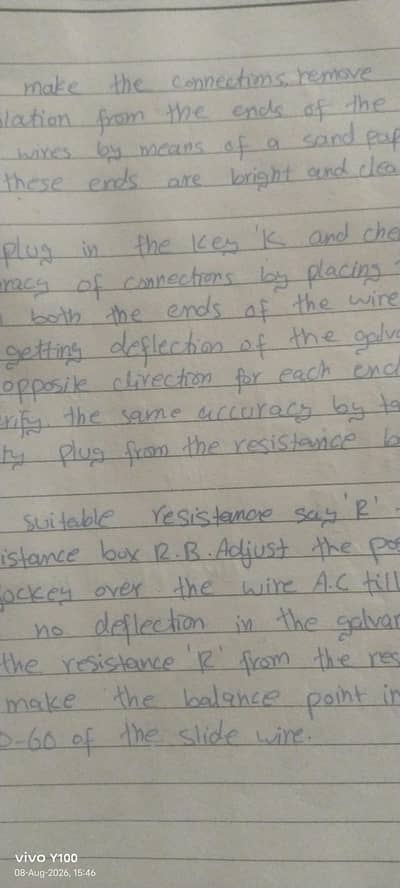 make the connections, remove
lation from the ends of the
wires by means of a sand pap
these ends are bright and clea
plug in the key 'K and che
racy of connections by placing
both the ends of the wire
getting deflection of the galva
opposite direction for each end
rify the same accuracy by ta
ty plug from the resistance b
suitable resistance say 'R'
istance box R.B. Adjust the pos
jockey over the wire A.C till
no deflection in the galvan
the resistance 'R' from the res
make the balance point in
0-60 of the slide wire.
vivo Y100
08-Aug-2026, 15:46